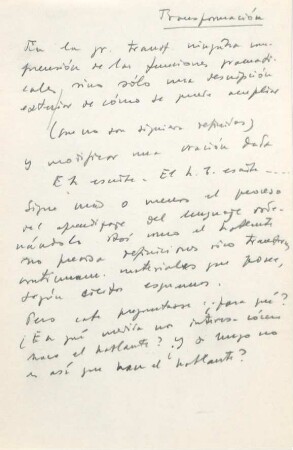 Transformación
En la gr. transf. ninguna com-
prensión de las funciones gramati-
cales, sino sólo una descripción
exterior de cómo se puede ampliar
(que no son siquiera definidas)
y modificar una oración dada
E h. escribe. El h. T. escribe ....
Sigue más o menos el proceso
del aprendizaje del lenguaje
el hablante
no precisa definiciones sino
materiales que posee,
según ciertos esquemas.
Pero cabe preguntarse: ¿para qué?
¿En qué medida nos interesa cómo
hace el hablante? y
es así que hace el hablante?